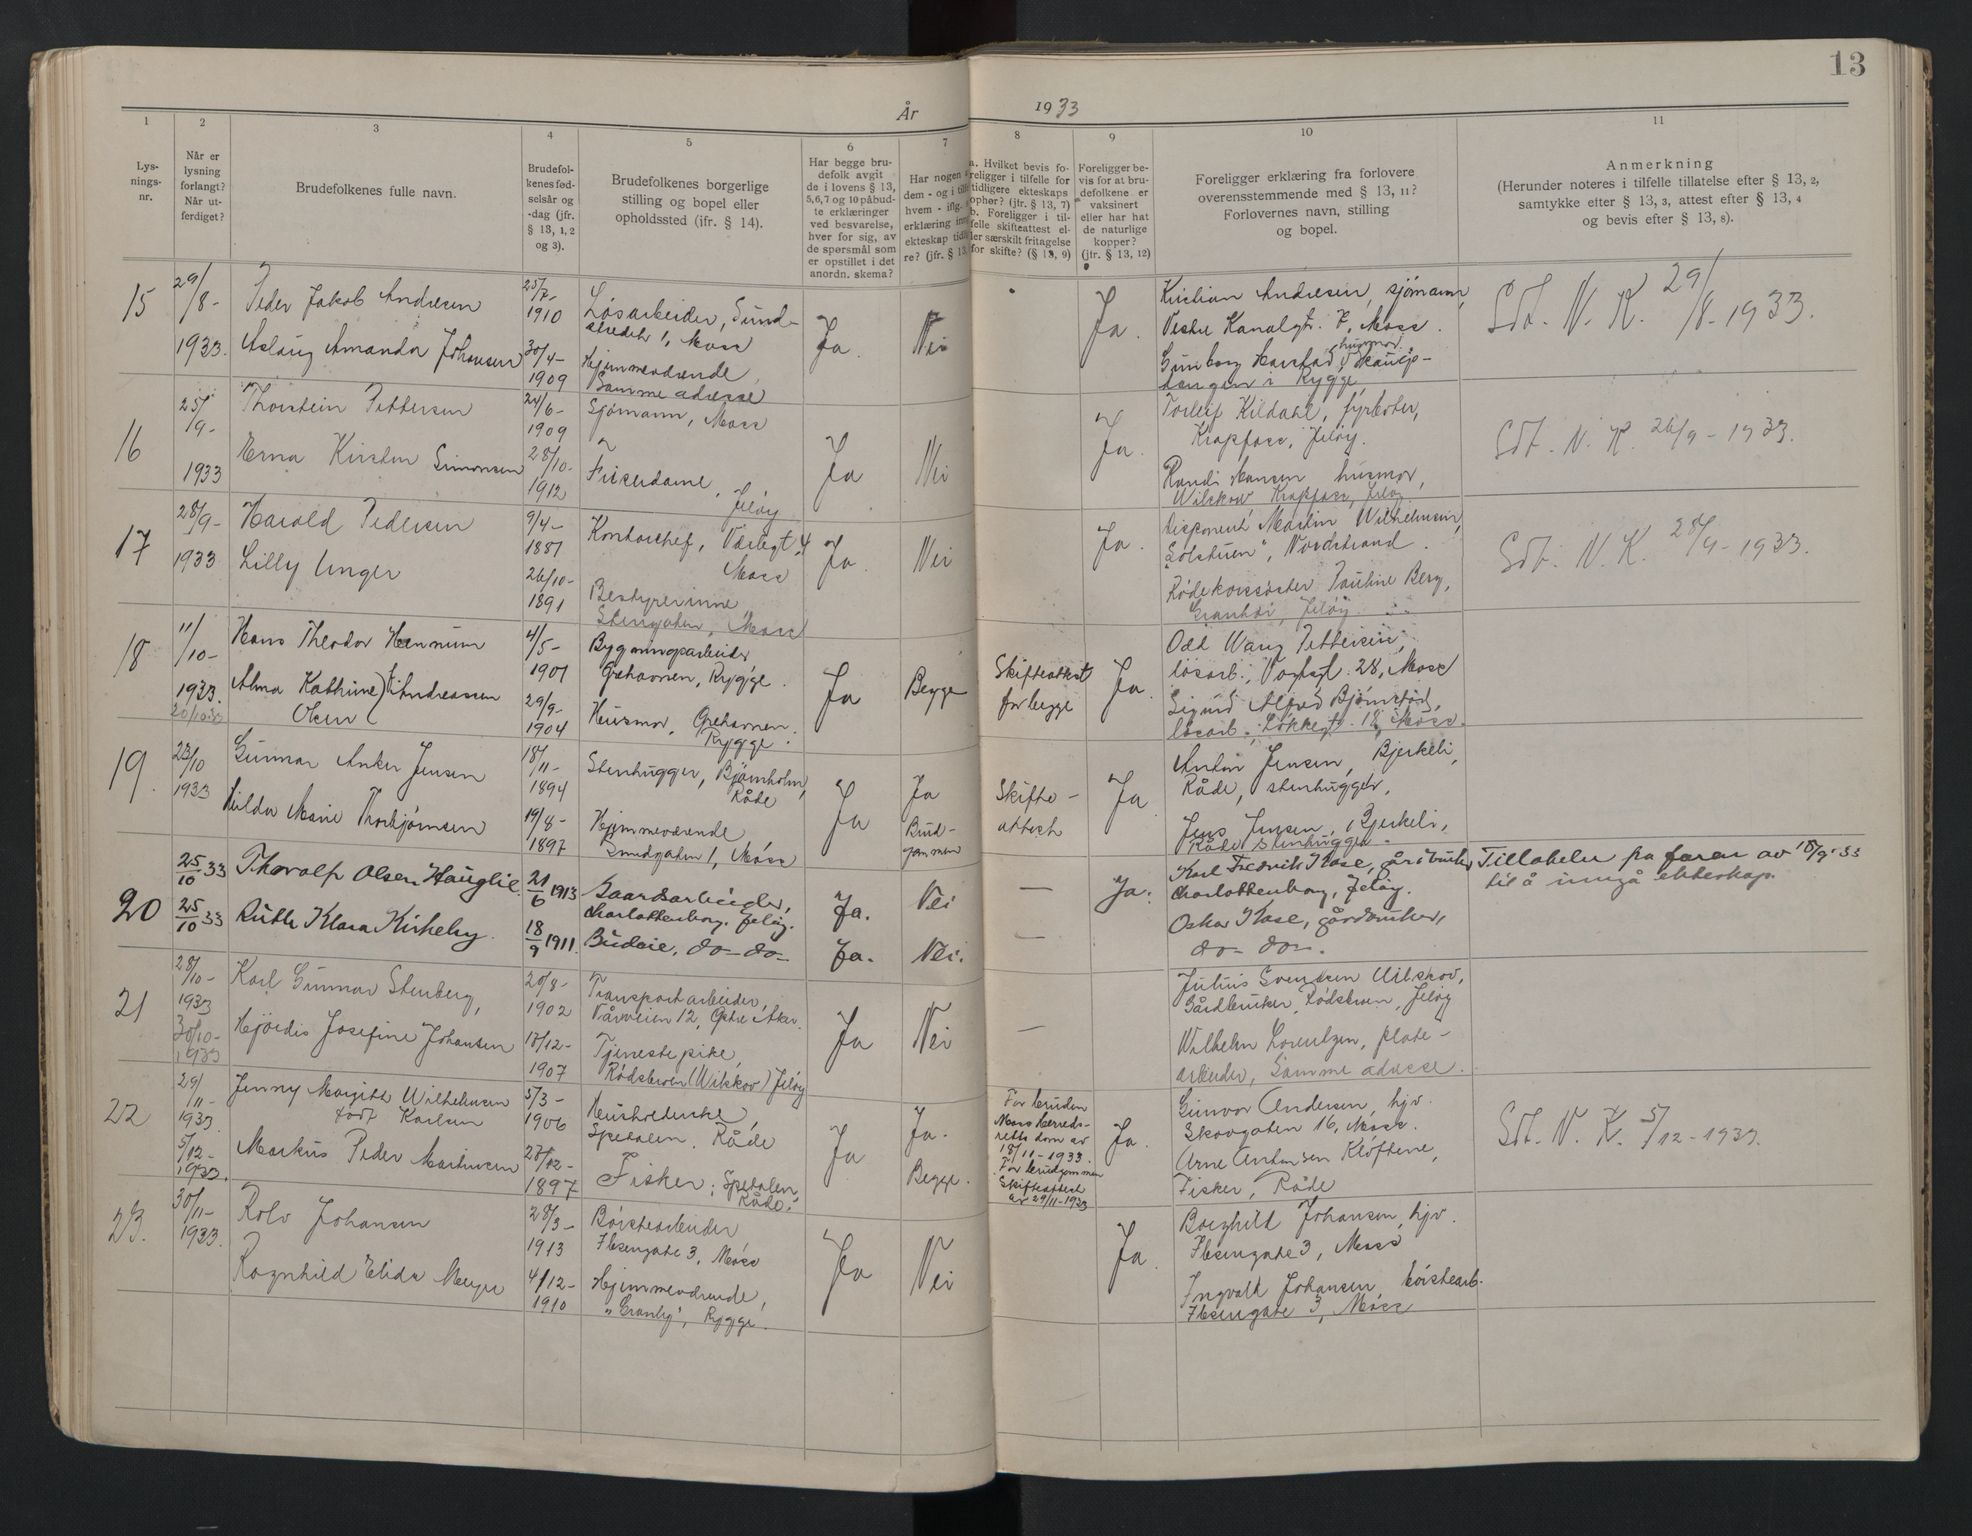 13
År 1933
1
2
3
4
5
6
7
8
9
10
11
Lys-
nings-
nr.
Når er
lysning
forlangt?
Når ut-
ferdiget?
Brudefolkenes fulle navn.
Brudefol-
kenes fød-
selsår og
-dag (jfr.
§ 13, 1, 2
og 3).
Brudefolkenes borgerlige
stilling og bopel eller
opholdssted (jfr. § 14).
Har begge bru-
defolk avgit
de i lovens § 13,
5, 6, 7 og 10 påbud-
te erklæringer
ved besvarelse,
hver for sig, av
de spørsmål som
er opstillet i det
anordn. skema?
Har nogen
dem - og i
hvem - iflg.
erklæring
ekteskap
re? (jfr. § 13,
a. Hvilket bevis fo-
religger i tilfelle for
tidligere ekteskaps
ophør? (jfr. § 13, 7)
b. Foreligger i til-
felle skifteattest el-
ler særskilt fritagelse
for skifte? (§ 13, 9)
Foreligger be-
vis for at bru-
defolkene er
vaksinert
eller har hat
de naturlige
kopper?
(jfr. § 13, 12)
Foreligger erklæring fra forlovere
overensstemmende med § 13, 11?
Forlovernes navn, stilling
og bopel.
Anmerkning
(Herunder noteres i tilfelle tillatelse efter § 13, 2,
samtykke efter § 13, 3, attest efter § 13, 4
og bevis efter § 13, 8).
15
29/8-
1933.
Peder Jakob Andresen
Aslaug Amanda Johansen
25/7-
1910
30/4-
1909
Løsarbeider, Sund-
stredet 1, Moss
Hjemmeværende
Samme adresse
Ja.
Nei
Ja.
Kristian Andresen, sjømann,
Vestre Kanalgt. 7, Moss.
Gunborg Harstad, husmor,
i Rygge
Sdt. N. K. 29/8-1933.
16
25/9-
1933
Thorstein Pettersen
Erna Kirsten Simonsen
24/6-
1909
28/10-
1912
Sjømann, Moss
Fiskerdame,
Jeløy
Ja
Nei
Ja.
Torleif Kildahl, fyrbøter,
Krapfoss, Jeløy.
Randi Hansen, husmor,
Wilskov, Krapfoss, Jeløy.
Sdt. N. K. 26/9-1933.
17
28/9-
1933
Harald Pedersen
Lilly Unger
9/4-
1887
26/10-
1891
Kontorchef, Værlegt. 4
Moss
Bestyrerinne,
Stengaten, Moss
Ja.
Nei
Ja.
Disponent Martin Wilhelmsen,
"Solstuen", Nordstrand.
Rødekorssøster Pauline Berg,
Granhøi, Jeløy.
Sdt. N. K. 28/9-1933.
18
11/10-
1933.
20/10 33
Hans Theodor Hennum
Alma Kathrine Andreassen
Olsen
4/5-
1901
29/9-
1904
Bygningsarbeider
Grehavnen, Rygge.
Husmor, Grehavnen,
Rygge.
Ja
Begge
Skifteattest
for begge
Ja.
Odd Wang Pettersen,
løsarb., Vogtsgt. 28, Moss
Sigurd Alfred Bjørnstad,
løsarb., Løkkegt. 18, Moss.
19.
23/10
1933
Gunnar Anker Jensen
Hilda Marie Thorbjørnsen
18/11-
1894
19/8-
1897
Stenhugger, Bjørnholm,
Råde
Hjemmeværende
Sundgaten 1, Moss
Ja
Ja
Brud-
gommen
Skifte-
attest
Ja
Anton Jensen, Bjerkeli,
Råde, stenhugger,
Jens Jensen, Bjerkeli,
Råde stenhugger.
20
25/10 33
25/10 33
Thorolf Olsen Hauglie
Ruth Klara Kirkeby.
21/6 1913
18/9 1911.
Gaardsarbeider,
Charlottenborg. Jeløy.
Budeie, do- do-
Ja.
Ja.
Nei
Nei.
—
—
Ja.
Karl Fredrik Aase, gårdbruker
Charlottenborg, Jeløy.
Oskar Aase, gårdbruker,
do- do-.
Tillatelse fra faren av 18/9 33
til å inngå ekteskap.
21
28/10-
1933
30/10-
1933
Karl Gunnar Stenberg,
Hjørdis Josefine Johansen
20/8-
1902
17/12-
1907
Transportarbeider,
Vårveien 12, Østre Aker.
Tjenestepike,
Rødsbroen (Wilskov) Jeløy
Ja
Nei
—
Julius Svendsen Wilskov,
Gårdbruker, Rødsbroen, Jeløy
Wilhelm Lorentzen, plate-
arbeider, Samme adresse.
22
29/11-
1933.
5/12-
1933.
Jenny Margith Wilhelmsen
født Karlsen
Markus Peder Martinsen
5/3-
1906
27/12-
1897
Husholderske,
Spetalen, Råde
Fisker, Spetalen,
Råde.
Ja
Ja.
Begge.
For bruden
Moss Herreds-
retts dom av
18/11-1933.
For brudgommen
Skifteattest
av 29/11-1933
Ja.
Gunvor Andersen, hjv.
Skovgaten 16, Moss.
Arne Antonsen Kløftene,
Fisker, Råde
Sdt. N. K. 5/12-1933.
23.
30/11-
1933.
Rolv Johansen
Ragnhild Elida Meyer
28/3-
1913
4/12-
1910
Børstearbeider
Ibsensgate 3, Moss
Hjemmeværende,
"Granly", Rygge.
Ja
Nei
Ja.
Borghild Johansen, hjv.
Ibsensgate 3, Moss
Ingvald Johansen, børstearb.
Ibsensgate 3, Moss